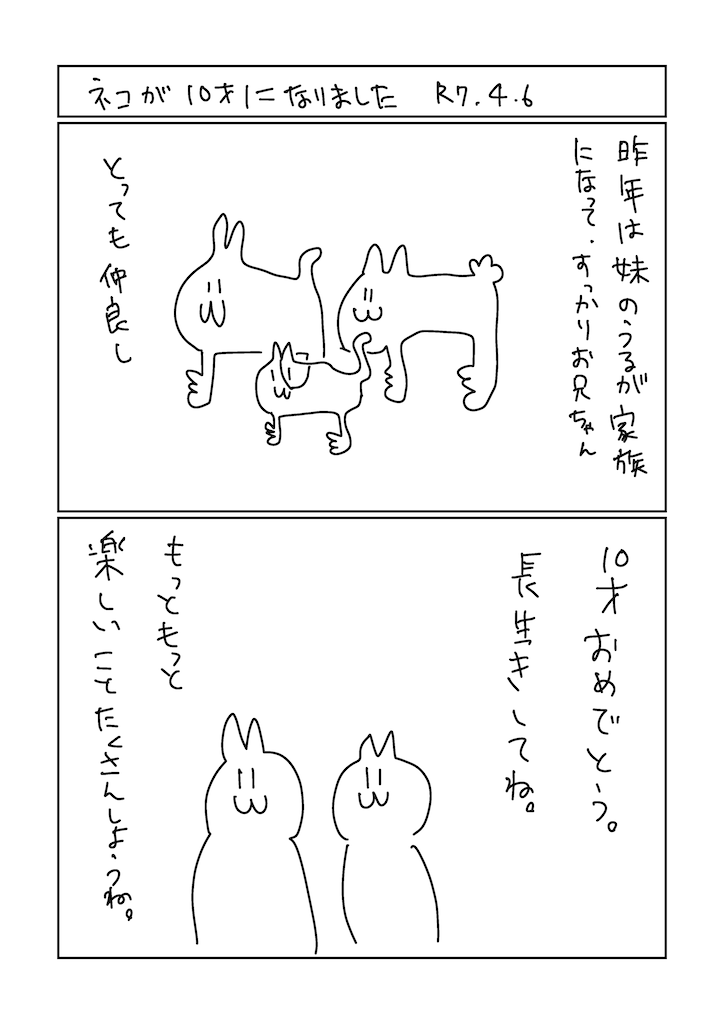 ネコが10才になりました R7.4.6
昨年は妹のうるが家族
になって、すっかりお兄ちゃん
とっても仲良し
10才おめでとう。
長生きしてね。
もっともっと
楽しいことたくさんしようね。